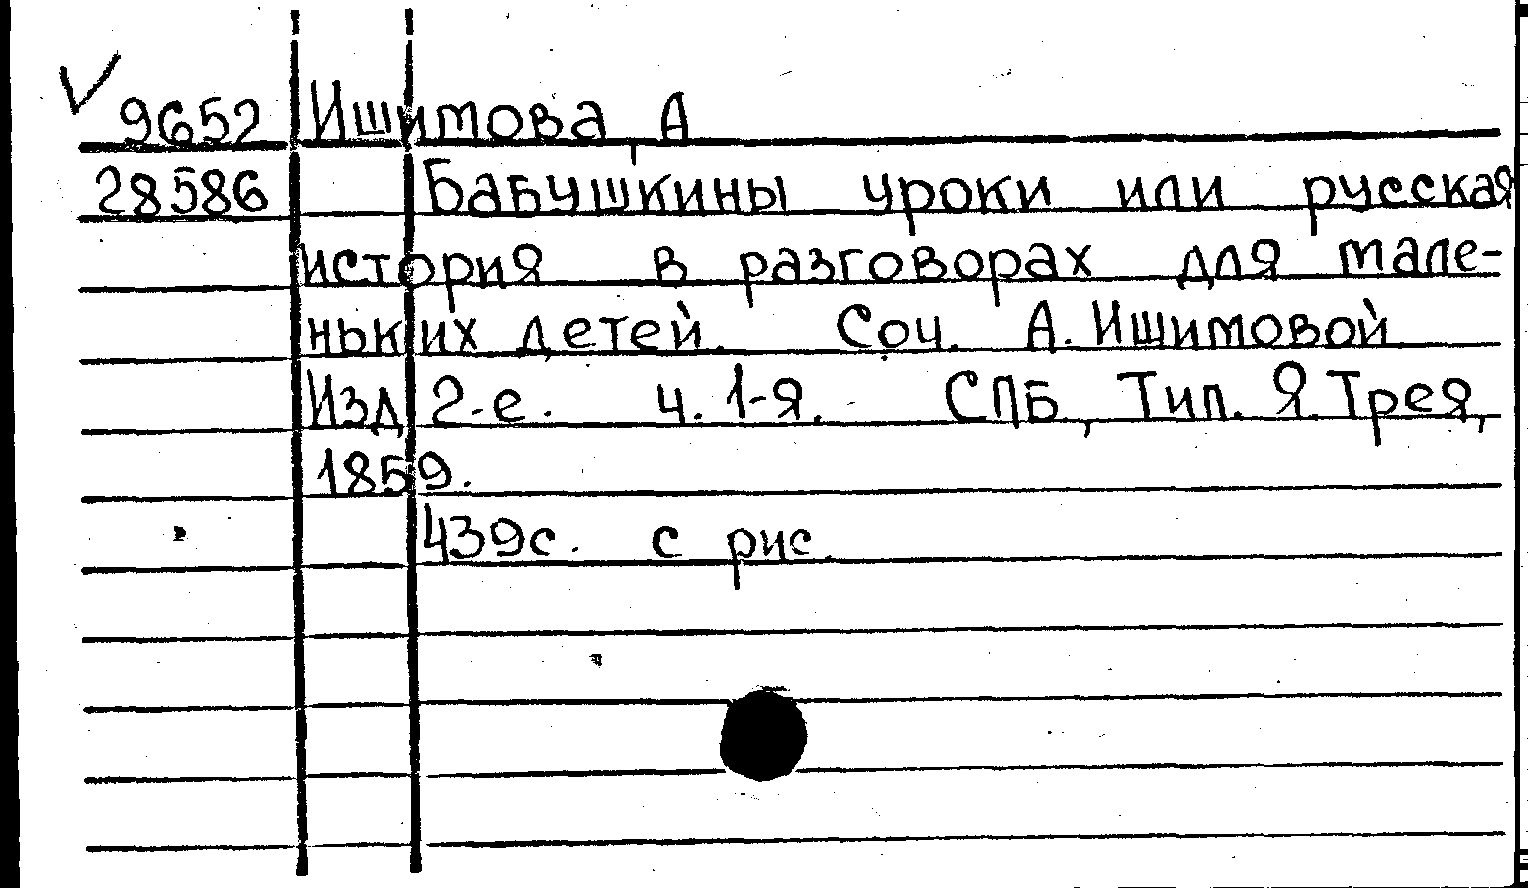 9652 Ишимова, А
28586 Бабушкины уроки или русская
история в разговорах для мале-
ньких детей. Соч. А. Ишимовой
Изд 2-е. ч. 1-я. СПБ, Тип. Я. Трея,
1859.
439с. с рис.